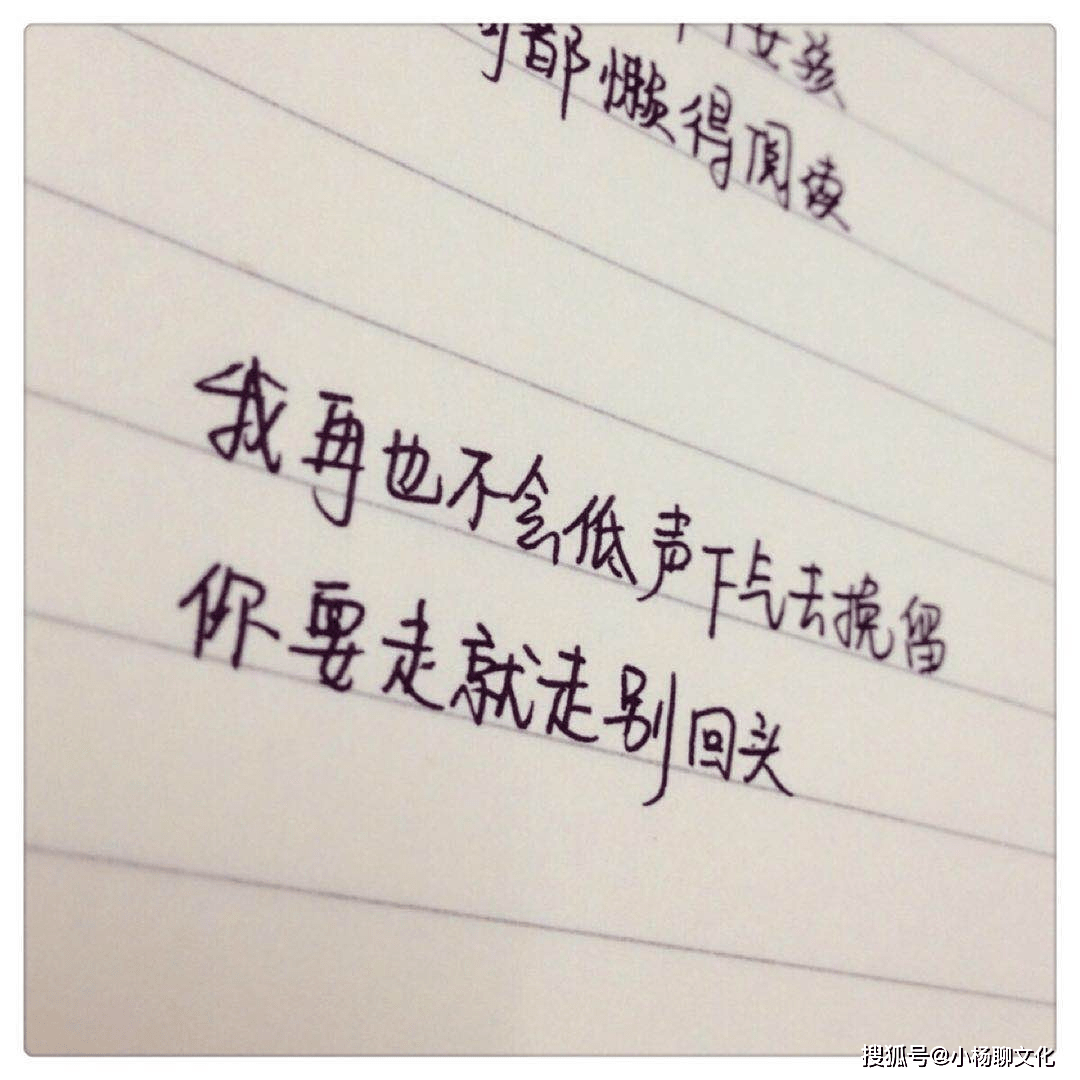 女孩
都懒得阅读
我再也不会低声下气去挽留
你要走就走别回头
搜狐号@小杨聊文化